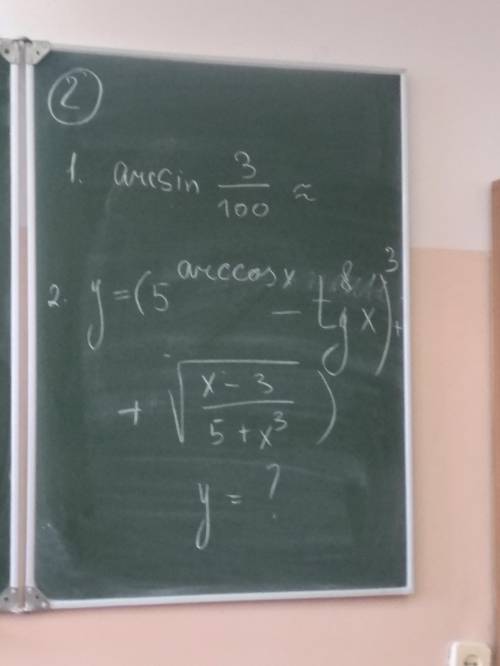 2
1. arcsin 3/100 ≈
2. y = (5^arccos x − tg^8 x)^3 +
+ √((x − 3)/(5 + x^3)) )
y = ?